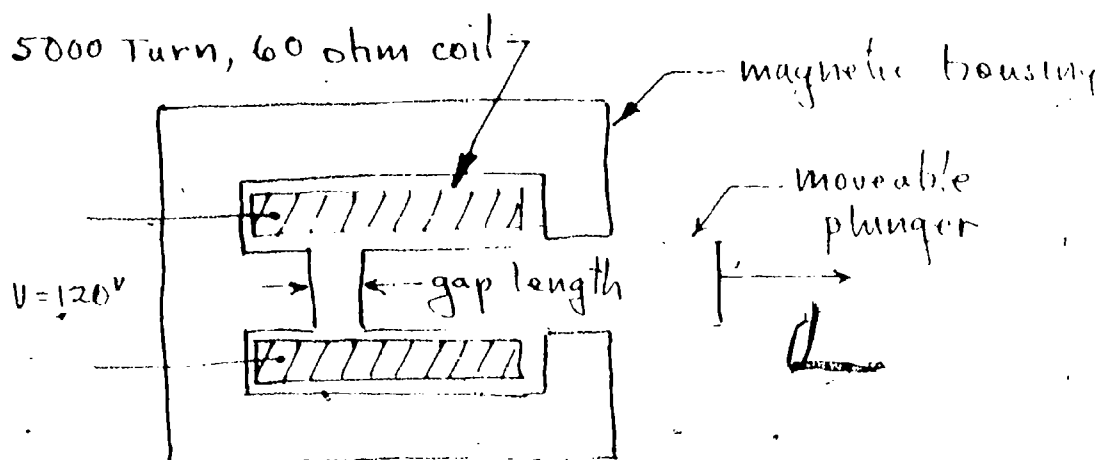 5000 Turn, 60 ohm coil
magnetic housing
moveable
plunger
gap length
V=120V
d